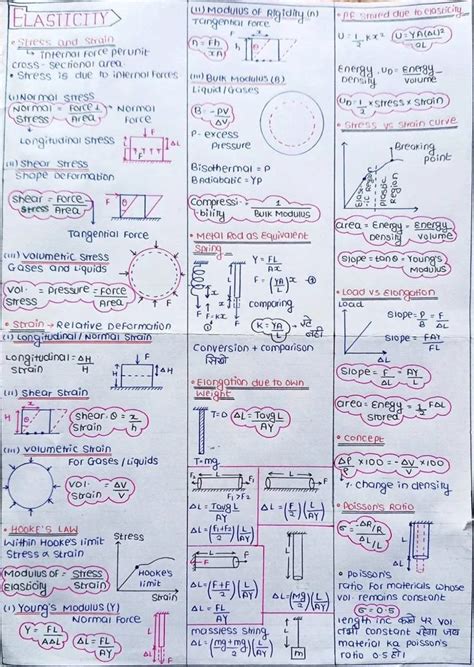 ELASTICITY
• Stress and Strain
↳ internal Force per unit
cross-sectional area
• Stress is due to internal forces
(i) Normal Stress
Normal Stress = Force⊥ / Area → Normal Force
Longitudinal stress
F
ΔL
(ii) Shear Stress
Shape Deformation
Shear stress = Force / Area
θ
F
Tangential Force
(iii) Volumetric Stress
Gases and Liquids
Vol. Stress = Pressure = Force / Area
F
• Strain → Relative Deformation
(i) Longitudinal / Normal Strain
Longitudinal = ΔH / H
F
H
ΔH
(ii) Shear Strain
H
x
F
Shear θ = x / h
Strain
(iii) Volumetric Strain
For Gases / Liquids
Vol. Strain = ΔV / V
• HOOKE'S LAW
Within Hooke's limit
Stress α Strain
Modulus of Elasticity = Stress / Strain
Stress
Hooke's limit
Strain
(i) Young's Modulus (Y)
Normal Force
Y = FL / AΔL
Y = FL
L
ΔL
F
(ii) Modulus of Rigidity (η)
Tangential Force
η = Fh / Ax
h
x
F
(iii) Bulk Modulus (B)
Liquid/Gases
B = -PV / ΔV
P - excess
Pressure
Bisothermal = P
Badiabatic = γP
Compressi-bility = 1 / Bulk Modulus
• Metal Rod as Equivalent
Spring
Y = FL / Ax
F = (YA / L) x
x
F
F = Kx
comparing
K = YA / L
Conversion + comparison
सिखो
• Elongation due to own
Weight
T=0
ΔL = Tavg L / AY
T=mg
L
F
F
ΔL = Tavg L / AY
L
F₁
F₂
F₁ > F₂
ΔL = (F₁+F₂ / 2)(L / AY)
L
F
ΔL = (F / 2)(L / AY)
ΔL = (F+F / 2)(L / AY)
ΔL = (mg / 2)(L / AY)
massless string
L
m
• PE stored due to elasticity
U = 1/2 Kx²
U = YA(ΔL)² / 2L
Energy Density, U_D = Energy / Volume
U_D = 1/2 × stress × strain
• Stress vs Strain curve
Breaking point
Elastic Region
Plastic Region
area = Energy Density = Energy / volume
Slope = tan θ = Young's Modulus
• Load vs Elongation
Load
Slope = F / ΔL
Slope = F / ΔL = AY / L
area = Energy stored = 1/2 FΔL
• Concept
Δρ / ρ × 100 = -ΔV / V × 100
ρ - change in density
• Poisson's Ratio
σ = -ΔR/R / ΔL/L
• Poisson's
ratio for materials whose
vol. remains constant
σ = 0.5
length inc करने पर vol
तभी constant रहेगा जब
material का poisson's
ratio 0.5 हो।